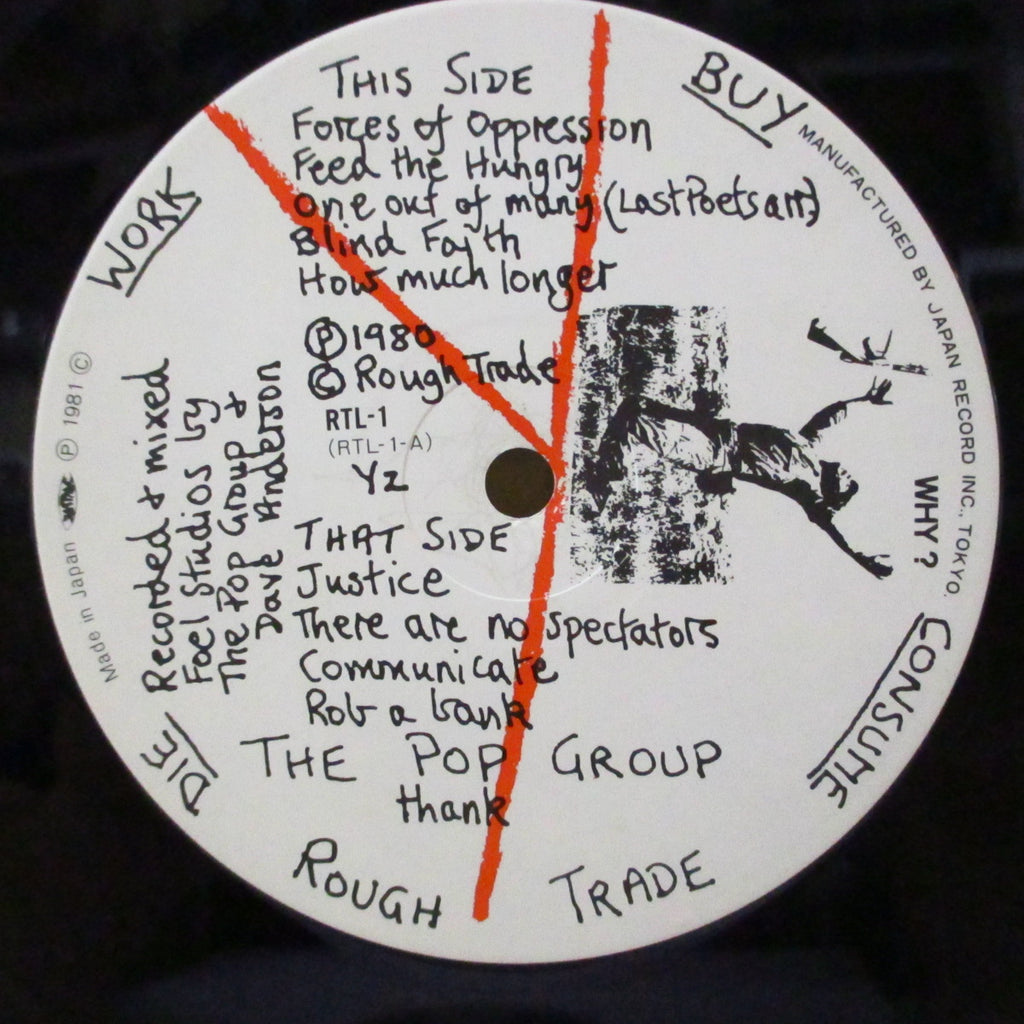 THIS SIDE
Forces of Oppression
Feed the Hungry
One out of many (Last Poets arr)
Blind Faith
How much longer
Ⓟ 1980
© Rough Trade
RTL-1
(RTL-1-A)
Y2
THAT SIDE
Justice
There are no spectators
Communicate
Rob a bank
THE POP GROUP
thank
ROUGH TRADE
WORK
BUY
CONSUME
DIE
WHY?
Recorded & mixed
Foel Studios by
The Pop Group &
Dave Anderson
Made in Japan Ⓟ 1981 ©
MANUFACTURED BY JAPAN RECORD INC., TOKYO.